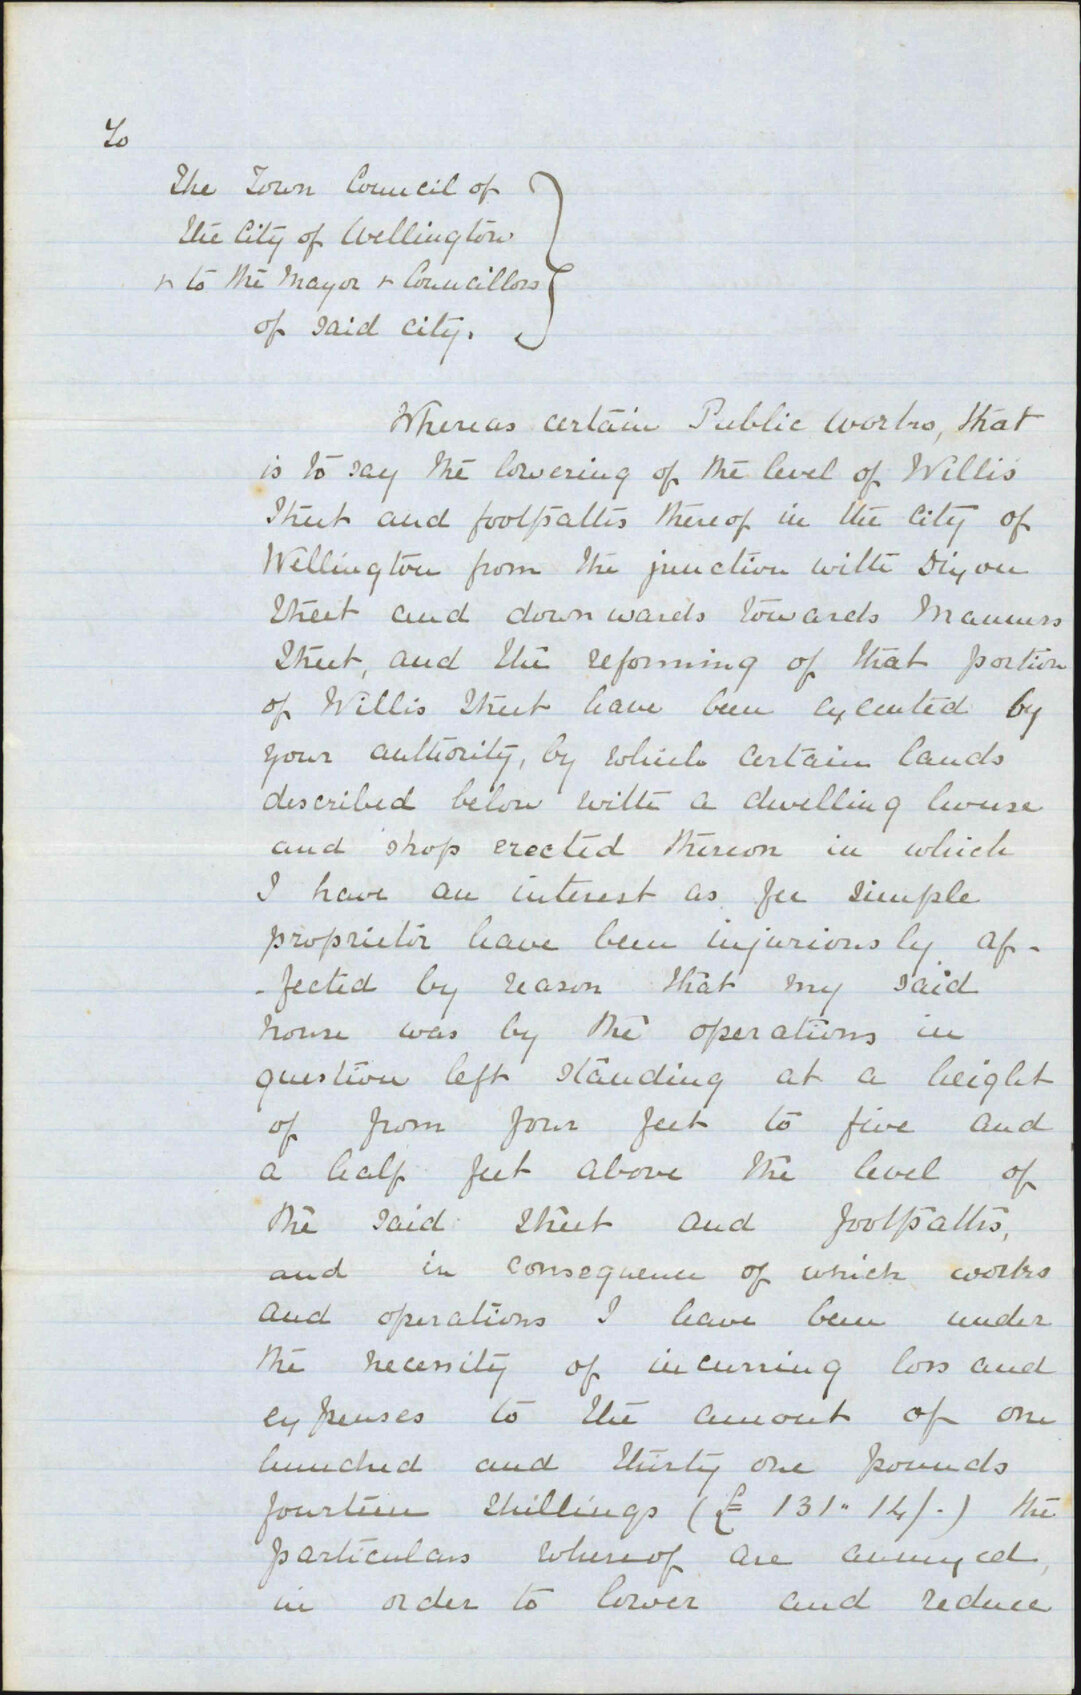 To
The Town Council of
the City of Wellington
+ to the Mayor + Councillors
of said city.
Whereas certain Public Works, that
is to say the lowering of the level of Willis
Street and footpaths thereof in the City of
Wellington from the junction with Dixon
Street and downwards towards Manners
Street, and the reforming of that portion
of Willis Street have been executed by
your authority, by which certain lands
described below with a dwelling house
and shop erected thereon in which
I have an interest as fee simple
proprietor have been injuriously af-
-fected by reason that my said
house was by the operations in
question left standing at a height
of from four feet to five and
a half feet above the level of
the said Street and footpaths,
and in consequence of which works
and operations I have been under
the necessity of incurring loss and
expenses to the amount of one
hundred and thirty one pounds
fourteen shillings (£131" 14/-) the
particulars whereof are annexed,
in order to lower and reduce